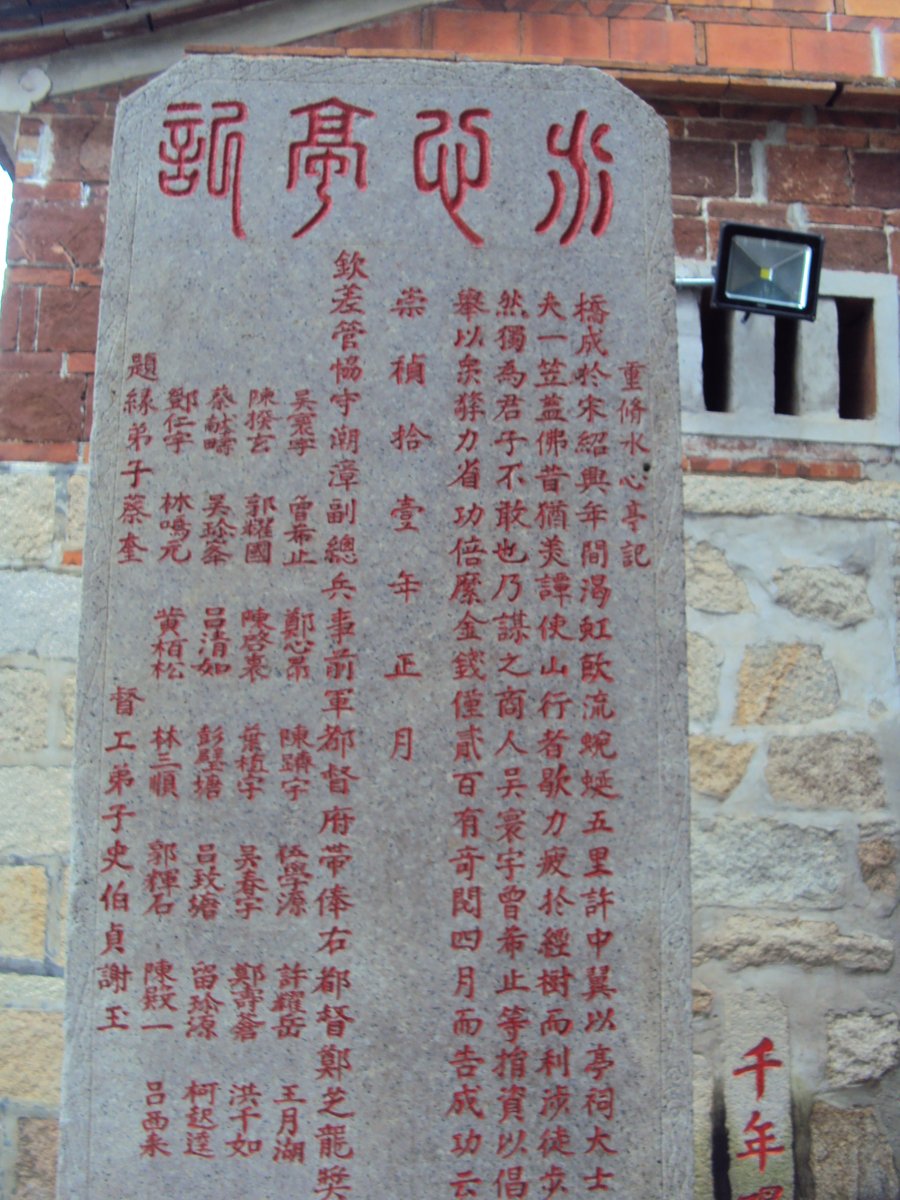 水心亭記
重脩水心亭記
橋成於宋紹興年間渴虹飲流蜿蜒五里許中翼以亭祠大士
夫一笠蓋佛昔猶美譚使山行者歇力疲於經樹而利涉徒步
然獨為君子不敢也乃謀之商人吳寰宇曾希止等捐資以倡
舉以眾擎力省功倍縻金錢僅貳百有奇閱四月而告成功云
崇禎拾壹年正月
欽差管協守潮漳副總兵事前軍都督府帶俸右都督鄭芝龍獎
吳寰宇 曾希止 鄭心 陳 宇 伍學源 許耀岳 王月湖
陳揆玄 郭耀國 陳啓 葉植宇 吳春宇 鄭壽 洪千如
蔡 疇 吳 峯 呂清如 彭 塘 呂玫塘 留 源 柯起逵
鄭任宇 林鳴元 黃栢松 林三順 郭輝石 陳 一 呂西泰
題緣弟子蔡奎 督工弟子史伯貞謝玉
千年